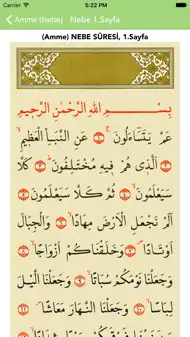 Carrier 5:22 PM
Amme (Nebe) Nebe 1.Sayfa
(Amme) NEBE SÛRESİ, 1.Sayfa
بِسْمِ اللّٰهِ الرَّحْمٰنِ الرَّحِيمِ
عَمَّ يَتَسَاءَلُونَ ﴿١﴾ عَنِ النَّبَأِ الْعَظِيمِ ﴿٢﴾
اَلَّذِى هُمْ فِيهِ مُخْتَلِفُونَ ﴿٣﴾ كَلَّا
سَيَعْلَمُونَ ﴿٤﴾ ثُمَّ كَلَّا سَيَعْلَمُونَ ﴿٥﴾
اَلَمْ نَجْعَلِ الْاَرْضَ مِهَادًا ﴿٦﴾ وَالْجِبَالَ
اَوْتَادًا ﴿٧﴾ وَخَلَقْنَاكُمْ اَزْوَاجًا ﴿٨﴾
وَجَعَلْنَا نَوْمَكُمْ سُبَاتًا ﴿٩﴾ وَجَعَلْنَا الَّيْلَ
لِبَاسًا ﴿١٠﴾ وَجَعَلْنَا النَّهَارَ مَعَاشًا ﴿١١﴾